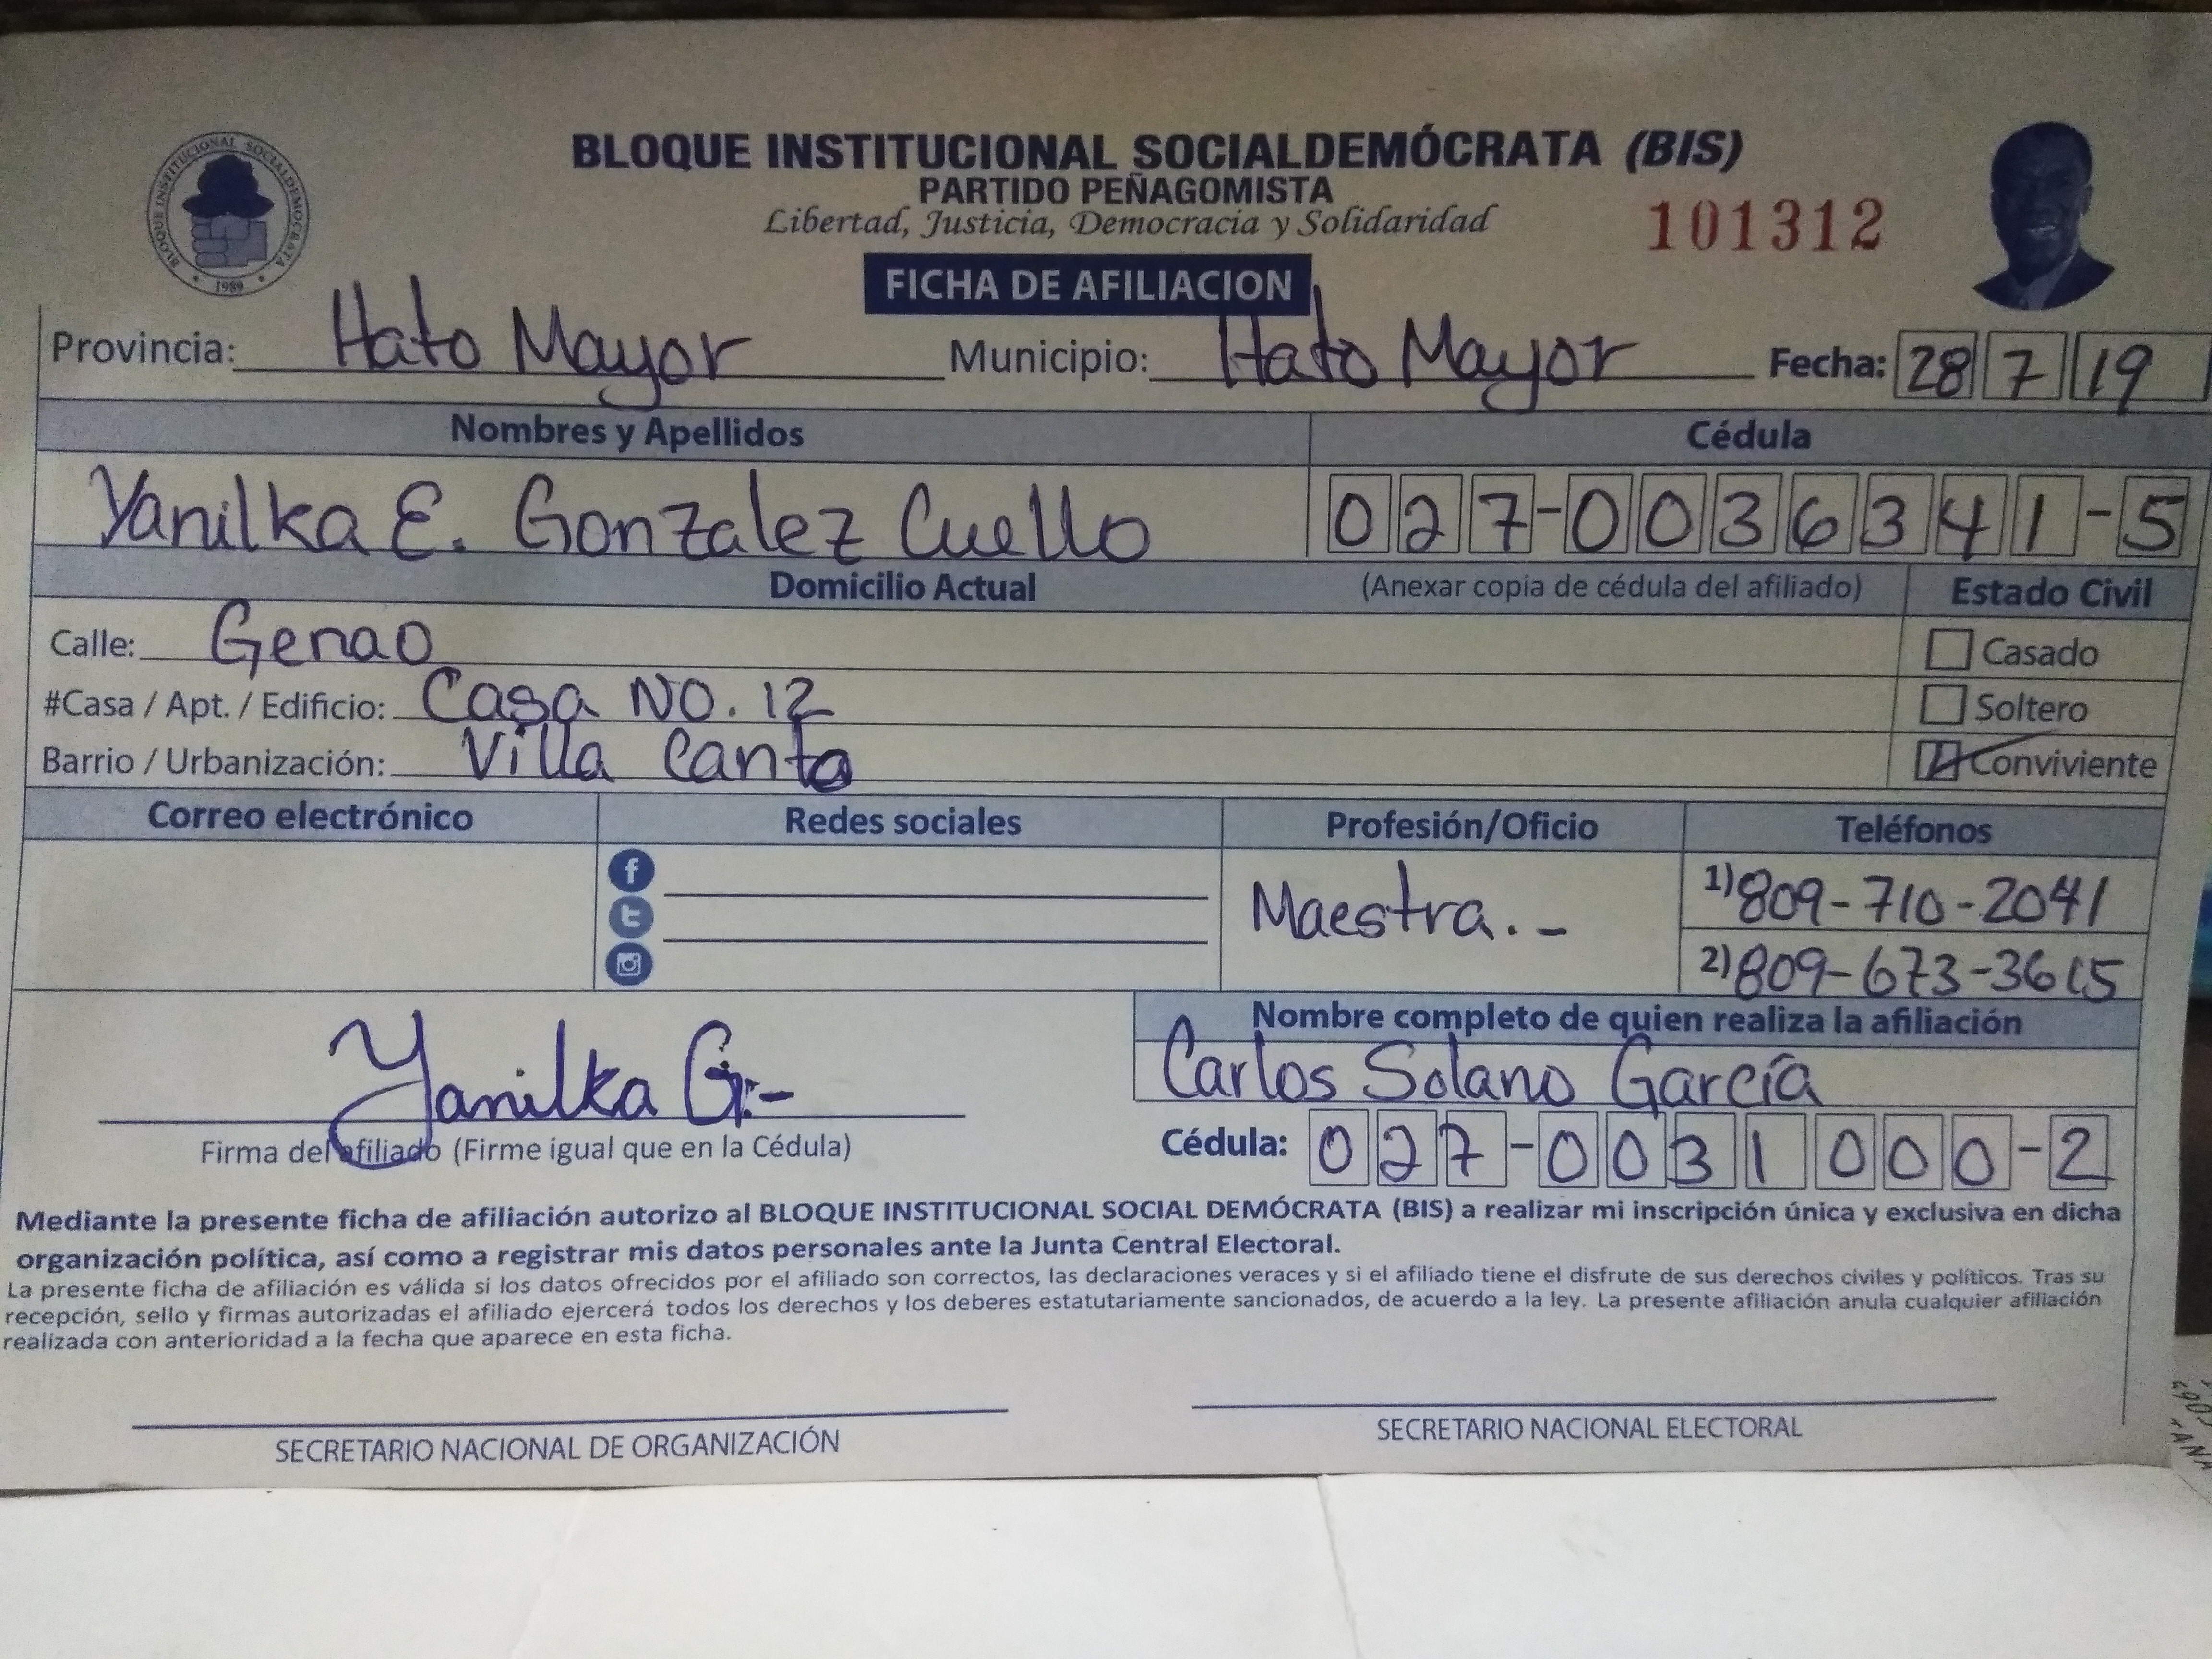 BLOQUE INSTITUCIONAL SOCIALDEMÓCRATA (BIS)
PARTIDO PEÑAGOMISTA
Libertad, Justicia, Democracia y Solidaridad
101312
BLOQUE INSTITUCIONAL SOCIALDEMOCRATA
1989
FICHA DE AFILIACION
Provincia: Hato Mayor Municipio: Hato Mayor Fecha: 28 7 19
Nombres y Apellidos Cédula
Yanilka E. Gonzalez Cuello 027-0036341-5
Domicilio Actual (Anexar copia de cédula del afiliado) Estado Civil
Calle: Genao Casado
#Casa / Apt. / Edificio: Casa NO. 12 Soltero
Barrio / Urbanización: Villa Canto Conviviente
Correo electrónico Redes sociales Profesión/Oficio Teléfonos
Maestra.- 1) 809-710-2041
2) 809-673-3615
Nombre completo de quien realiza la afiliación
Yanilka G.- Carlos Solano García
Firma del afiliado (Firme igual que en la Cédula) Cédula: 027-0031000-2
Mediante la presente ficha de afiliación autorizo al BLOQUE INSTITUCIONAL SOCIAL DEMÓCRATA (BIS) a realizar mi inscripción única y exclusiva en dicha
organización política, así como a registrar mis datos personales ante la Junta Central Electoral.
La presente ficha de afiliación es válida si los datos ofrecidos por el afiliado son correctos, las declaraciones veraces y si el afiliado tiene el disfrute de sus derechos civiles y políticos. Tras su
recepción, sello y firmas autorizadas el afiliado ejercerá todos los derechos y los deberes estatutariamente sancionados, de acuerdo a la ley. La presente afiliación anula cualquier afiliación
realizada con anterioridad a la fecha que aparece en esta ficha.
SECRETARIO NACIONAL DE ORGANIZACIÓN SECRETARIO NACIONAL ELECTORAL